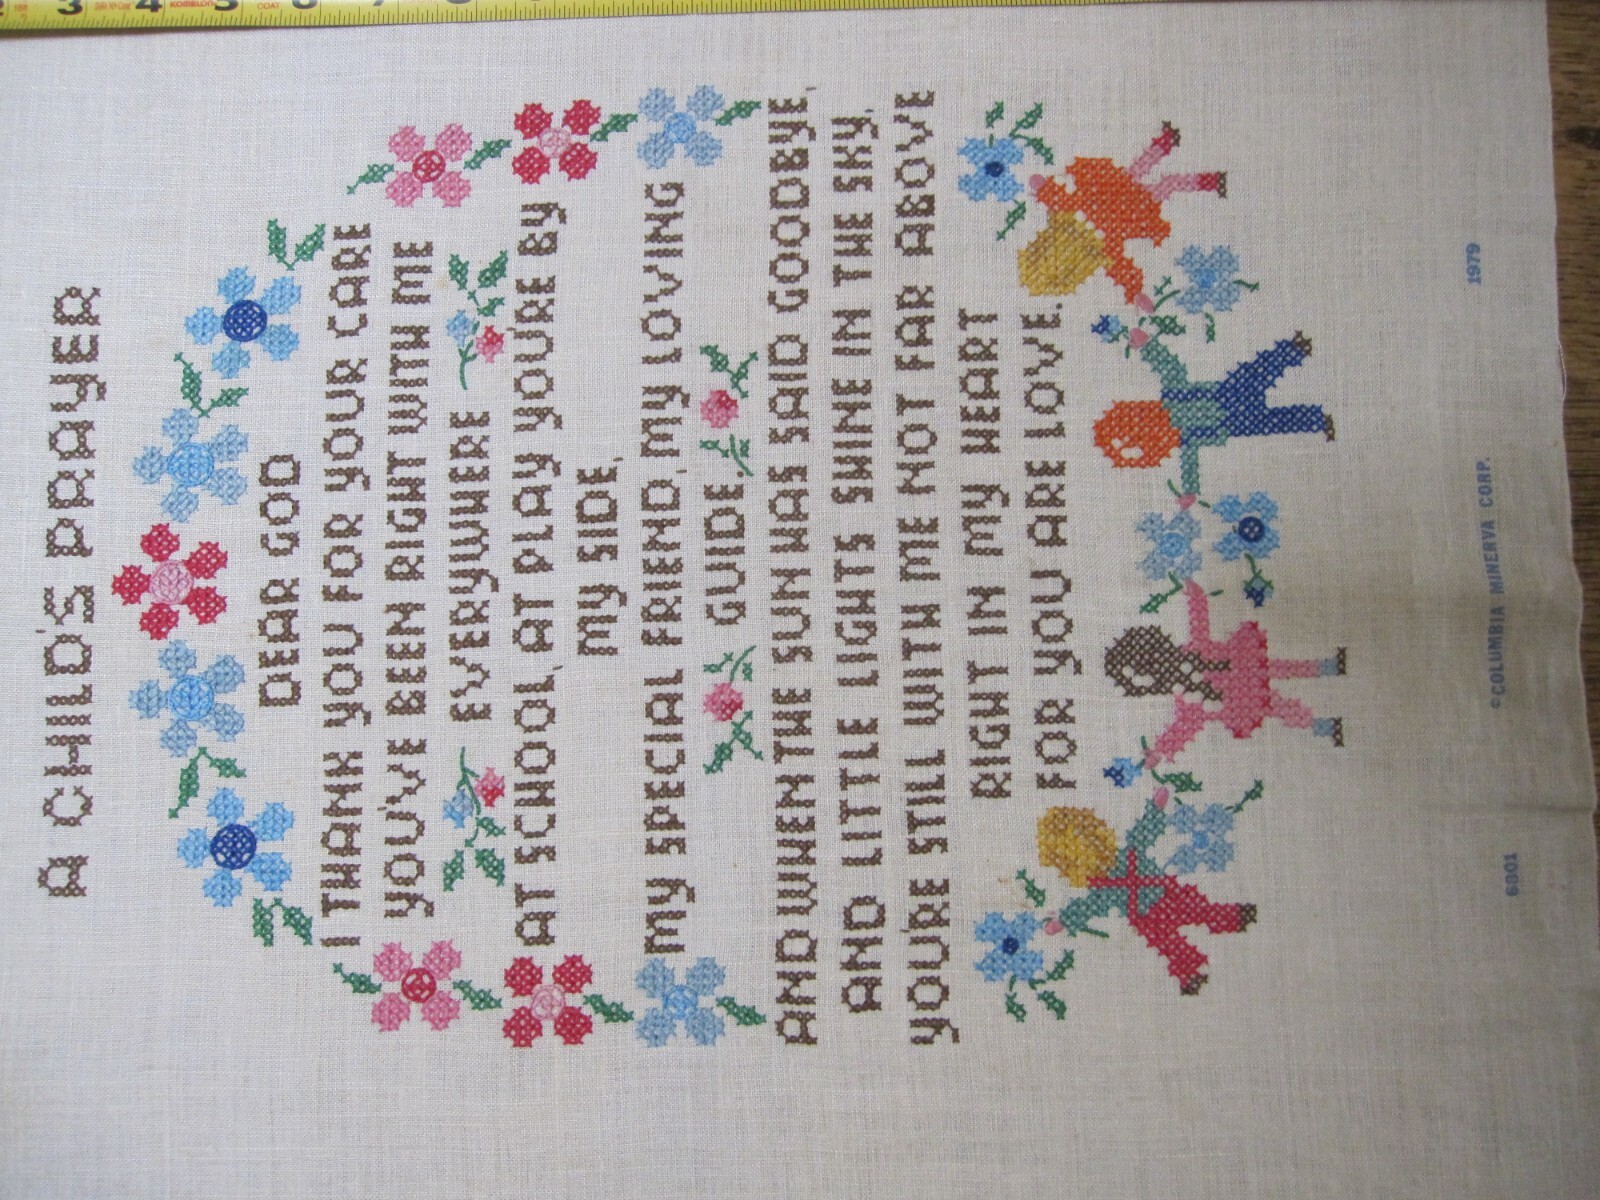 A CHILD'S PRAYER
DEAR GOD
I THANK YOU FOR YOUR CARE
YOU'VE BEEN RIGHT WITH ME
EVERYWHERE
AT SCHOOL, AT PLAY YOU'RE BY
MY SIDE,
MY SPECIAL FRIEND, MY LOVING
GUIDE.
AND WHEN THE SUN HAS SAID GOODBYE,
AND LITTLE LIGHTS SHINE IN THE SKY,
YOU'RE STILL WITH ME NOT FAR ABOVE
RIGHT IN MY HEART
FOR YOU ARE LOVE.
6801 ©COLUMBIA MINERVA CORP. 1979
3 4 5 6 7 8
KOMELON
COAT